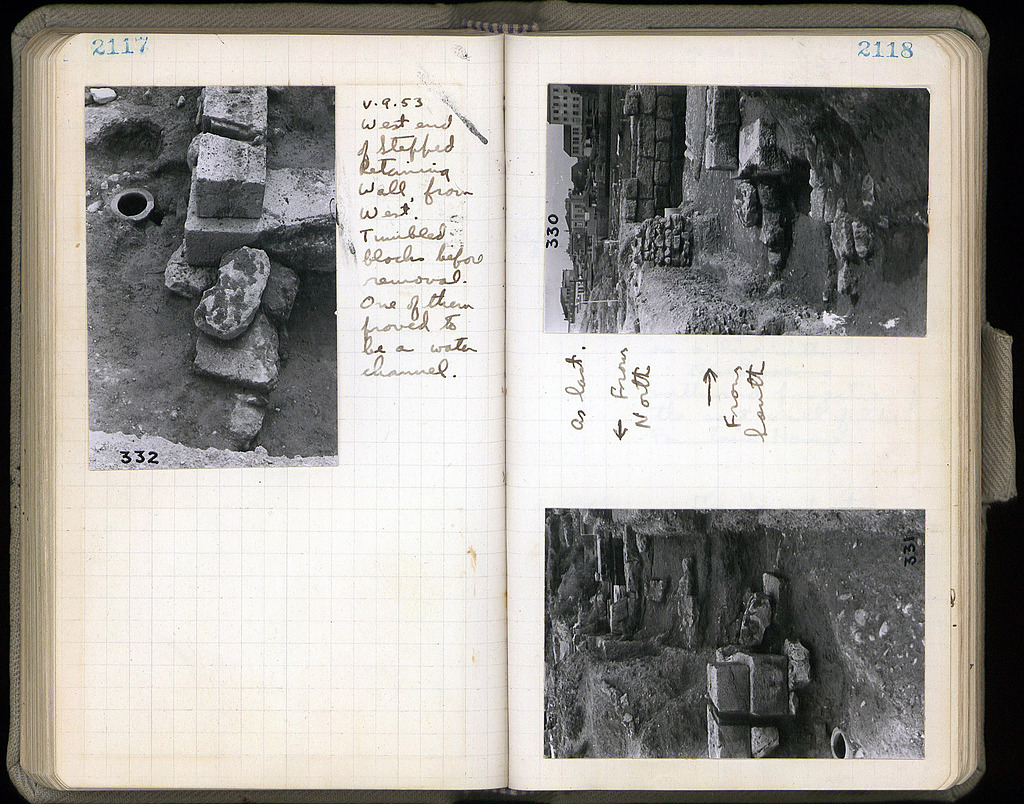 2117
V.9.53
West end
of Stepped
Retaining
Wall, from
West.
Tumbled
blocks before
removal.
One of them
proved to
be a water
channel.
332
2118
330
as last.
← From
North
→
From
South
331